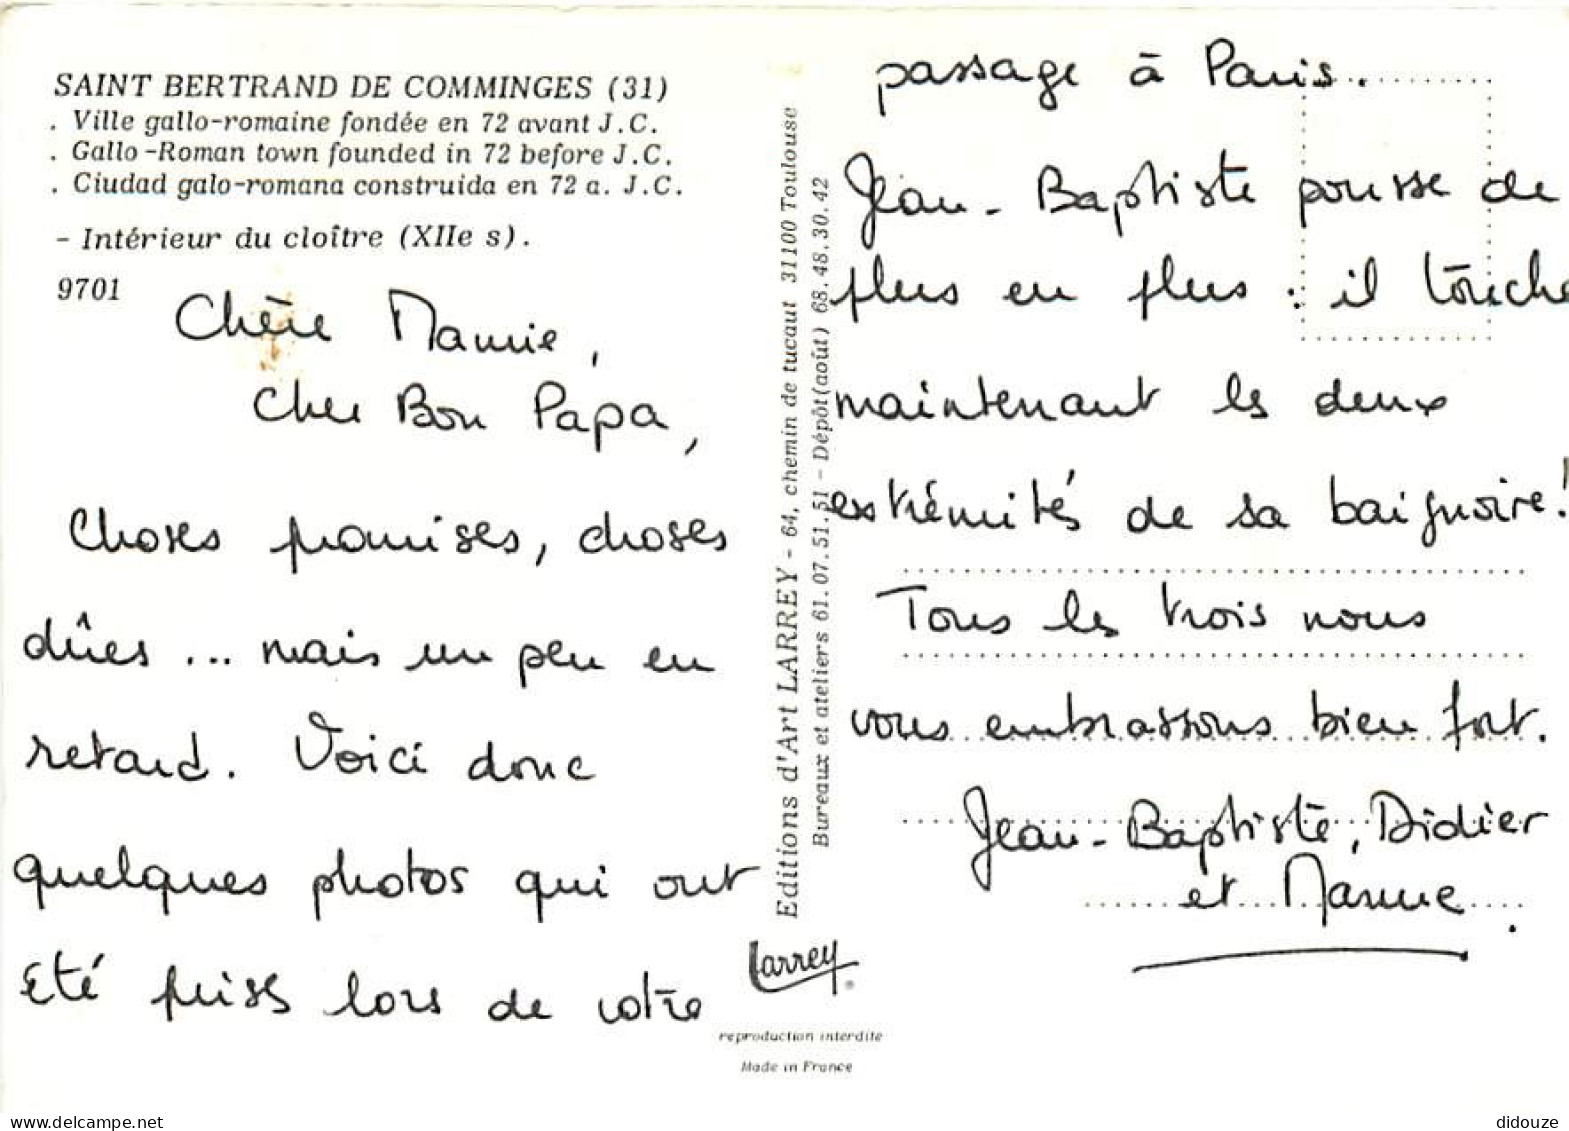 SAINT BERTRAND DE COMMINGES (31)
. Ville gallo-romaine fondée en 72 avant J.C.
. Gallo-Roman town founded in 72 before J.C.
. Ciudad galo-romana construida en 72 a. J.C.
- Intérieur du cloître (XIIe s).
9701
Chère Mamie,
Cher Bon Papa,
Choses promises, choses
dûes ... mais un peu en
retard. Voici donc
quelques photos qui ont
été prises lors de votre
Editions d'Art LARREY - 64, chemin de tucaut 31100 Toulouse
Bureaux et ateliers 61.07.51.51 - Dépôt(août) 68.48.30.42
Larrey
reproduction interdite
Made in France
passage à Paris.
Jean-Baptiste pousse de
plus en plus : il touche
maintenant les deux
extrémités de sa baignoire!
Tous les trois nous
vous embrassons bien fort.
Jean-Baptiste, Didier
et Manue.
delcampe.net
didouze